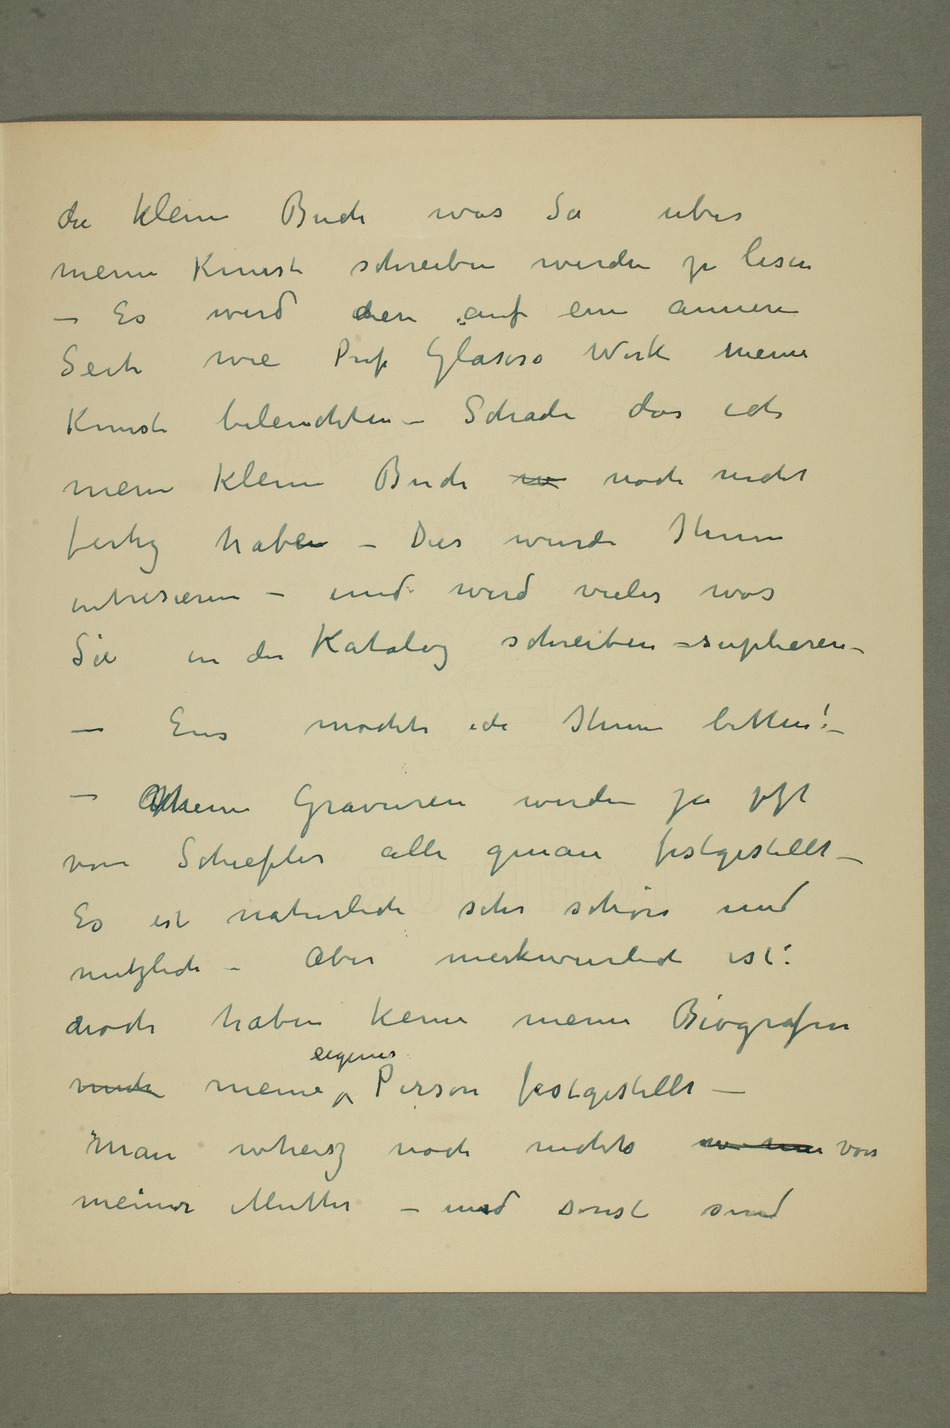 die kleine Buch was Sie uber
meine Kunst schreiben werden zu lesen
– Es wird den auf eine annere
Seite wie Prof Glasers Werk meine
Kunst beleuchten – Schade das ich
mein kleine Buch noch nicht
fertig haben – Dies wurde Ihnen
intresieren – und wird vieles was
Sie in der Katalog schreiben – suplieren –
– Eins mochte ich Ihnen bitten! –
– Meine Gravuren werden ja jetzt
von Schiefler alle genau festgestellt –
Es ist naturlich sehr schön und
nutzlich – Aber merkwurlich ist:
noch haben keine meine Biografen
meine eigenes Person festgestellt –
Man wheisz noch nichts von
meiner Mutter – und sonst sind